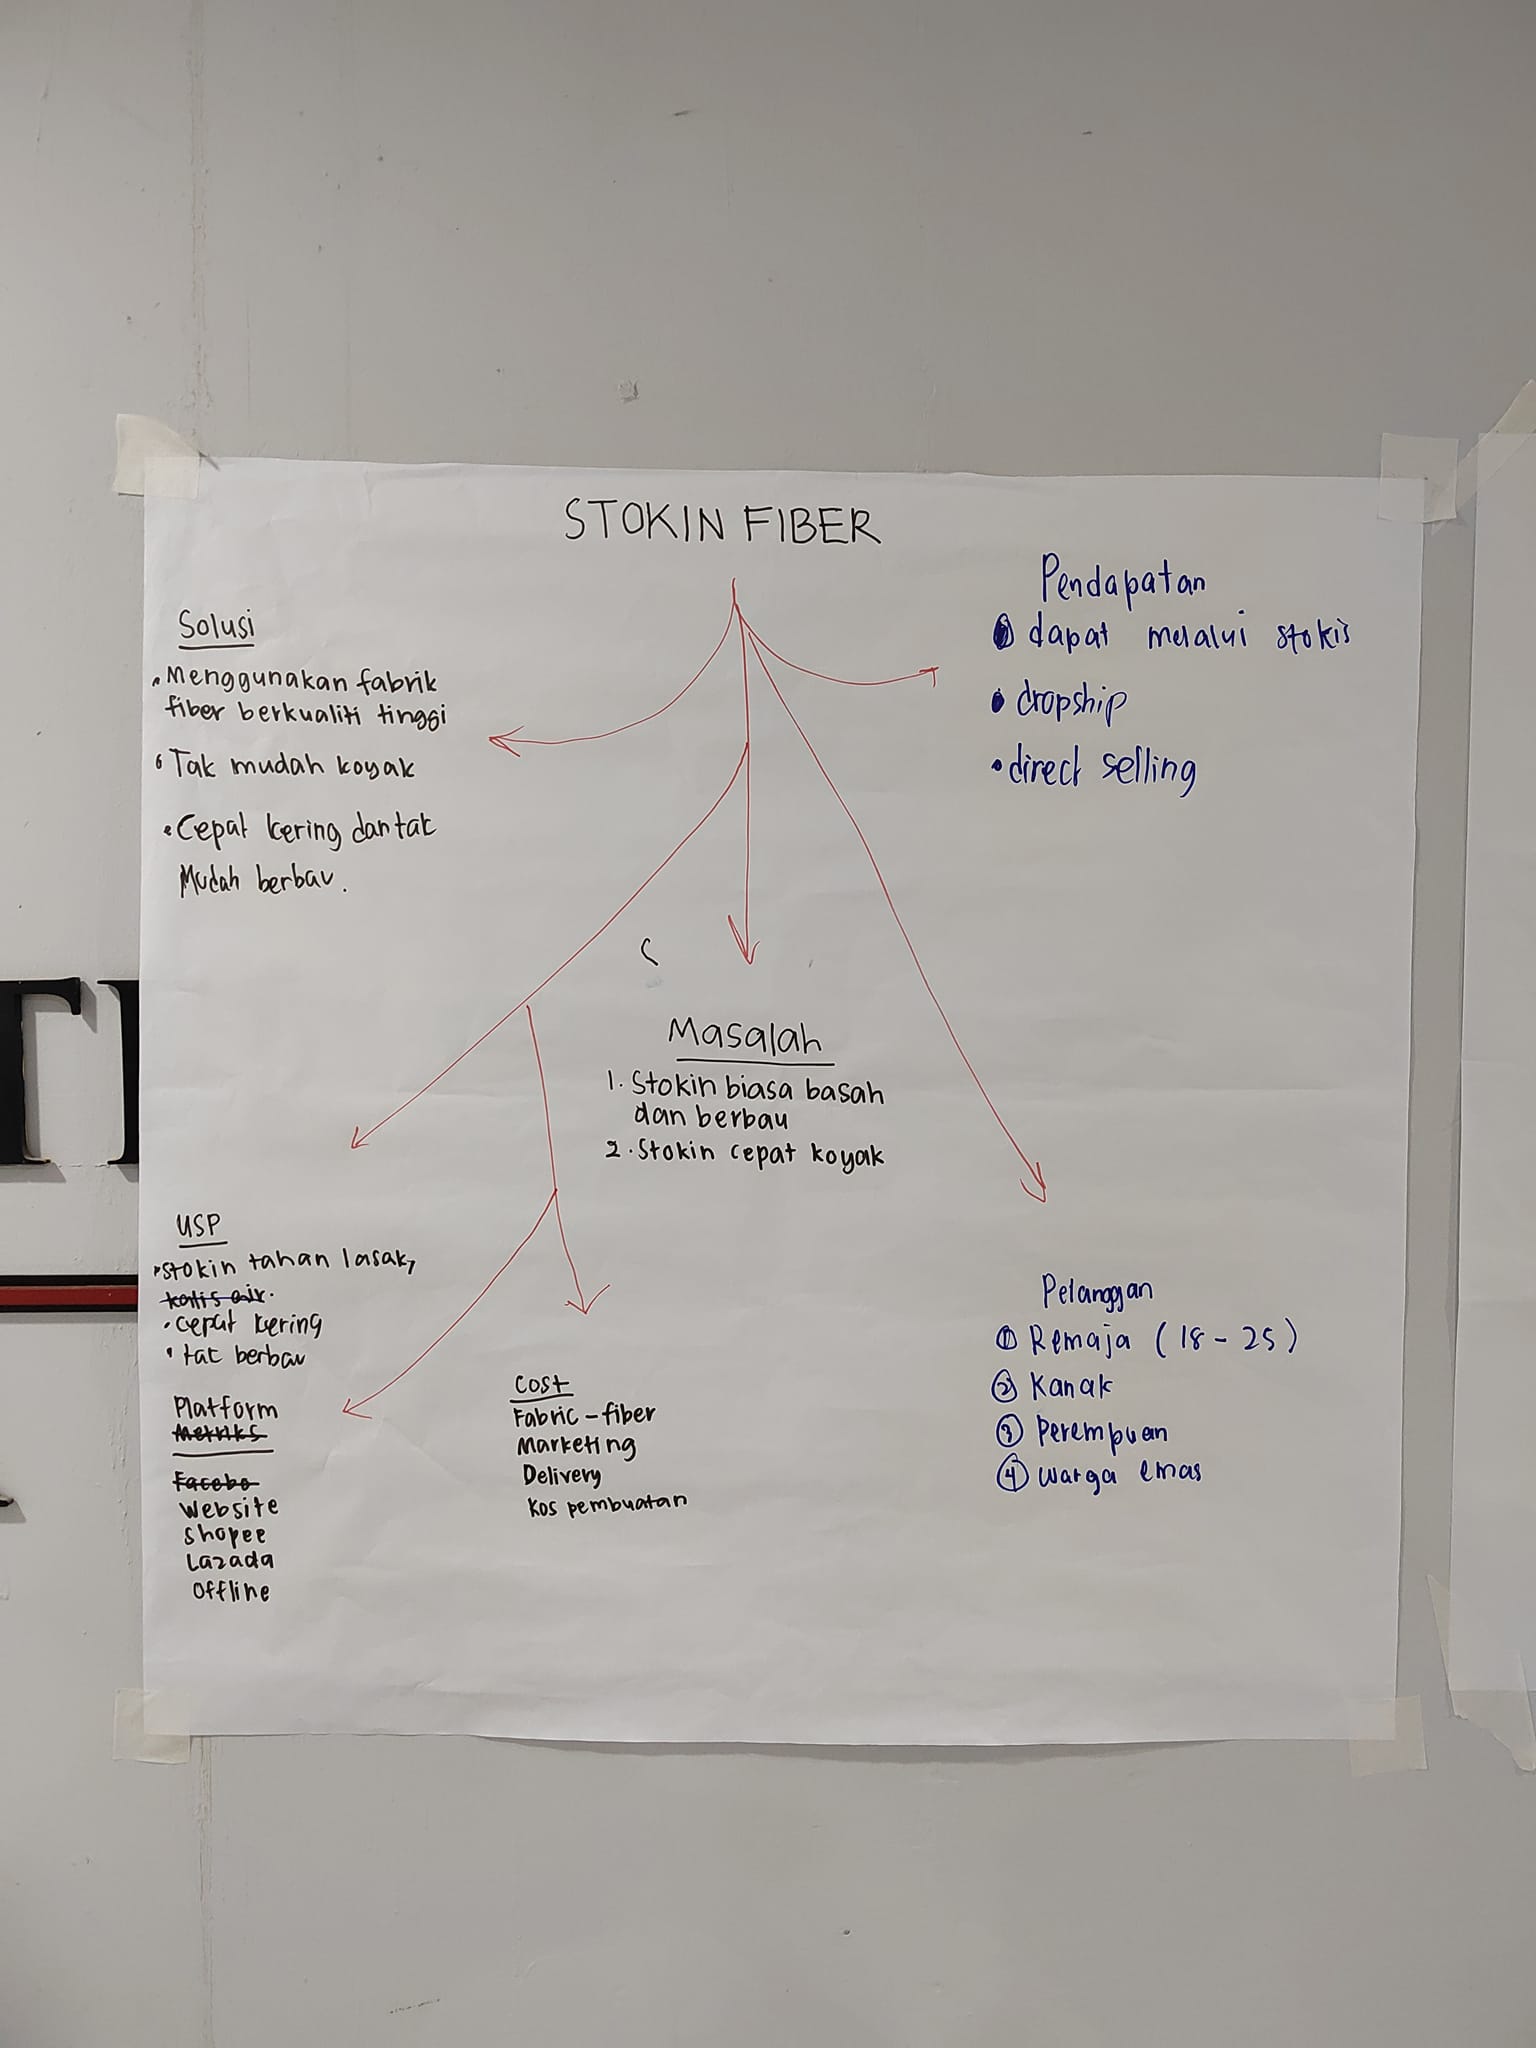 STOKIN FIBER
Solusi
• Menggunakan fabrik
fiber berkualiti tinggi
• Tak mudah koyak
• Cepat kering dan tak
Mudah berbau.
Pendapatan
• dapat melalui stokis
• dropship
• direct selling
Masalah
1. Stokin biasa basah
dan berbau
2. Stokin cepat koyak
USP
• Stokin tahan lasak,
kalis air.
• cepat kering
• tak berbau
Platform
Metriks
Facebo
Website
Shopee
Lazada
Offline
Cost
Fabric - fiber
Marketing
Delivery
Kos pembuatan
Pelanggan
① Remaja (18 - 25)
② Kanak
③ Perempuan
④ Warga emas